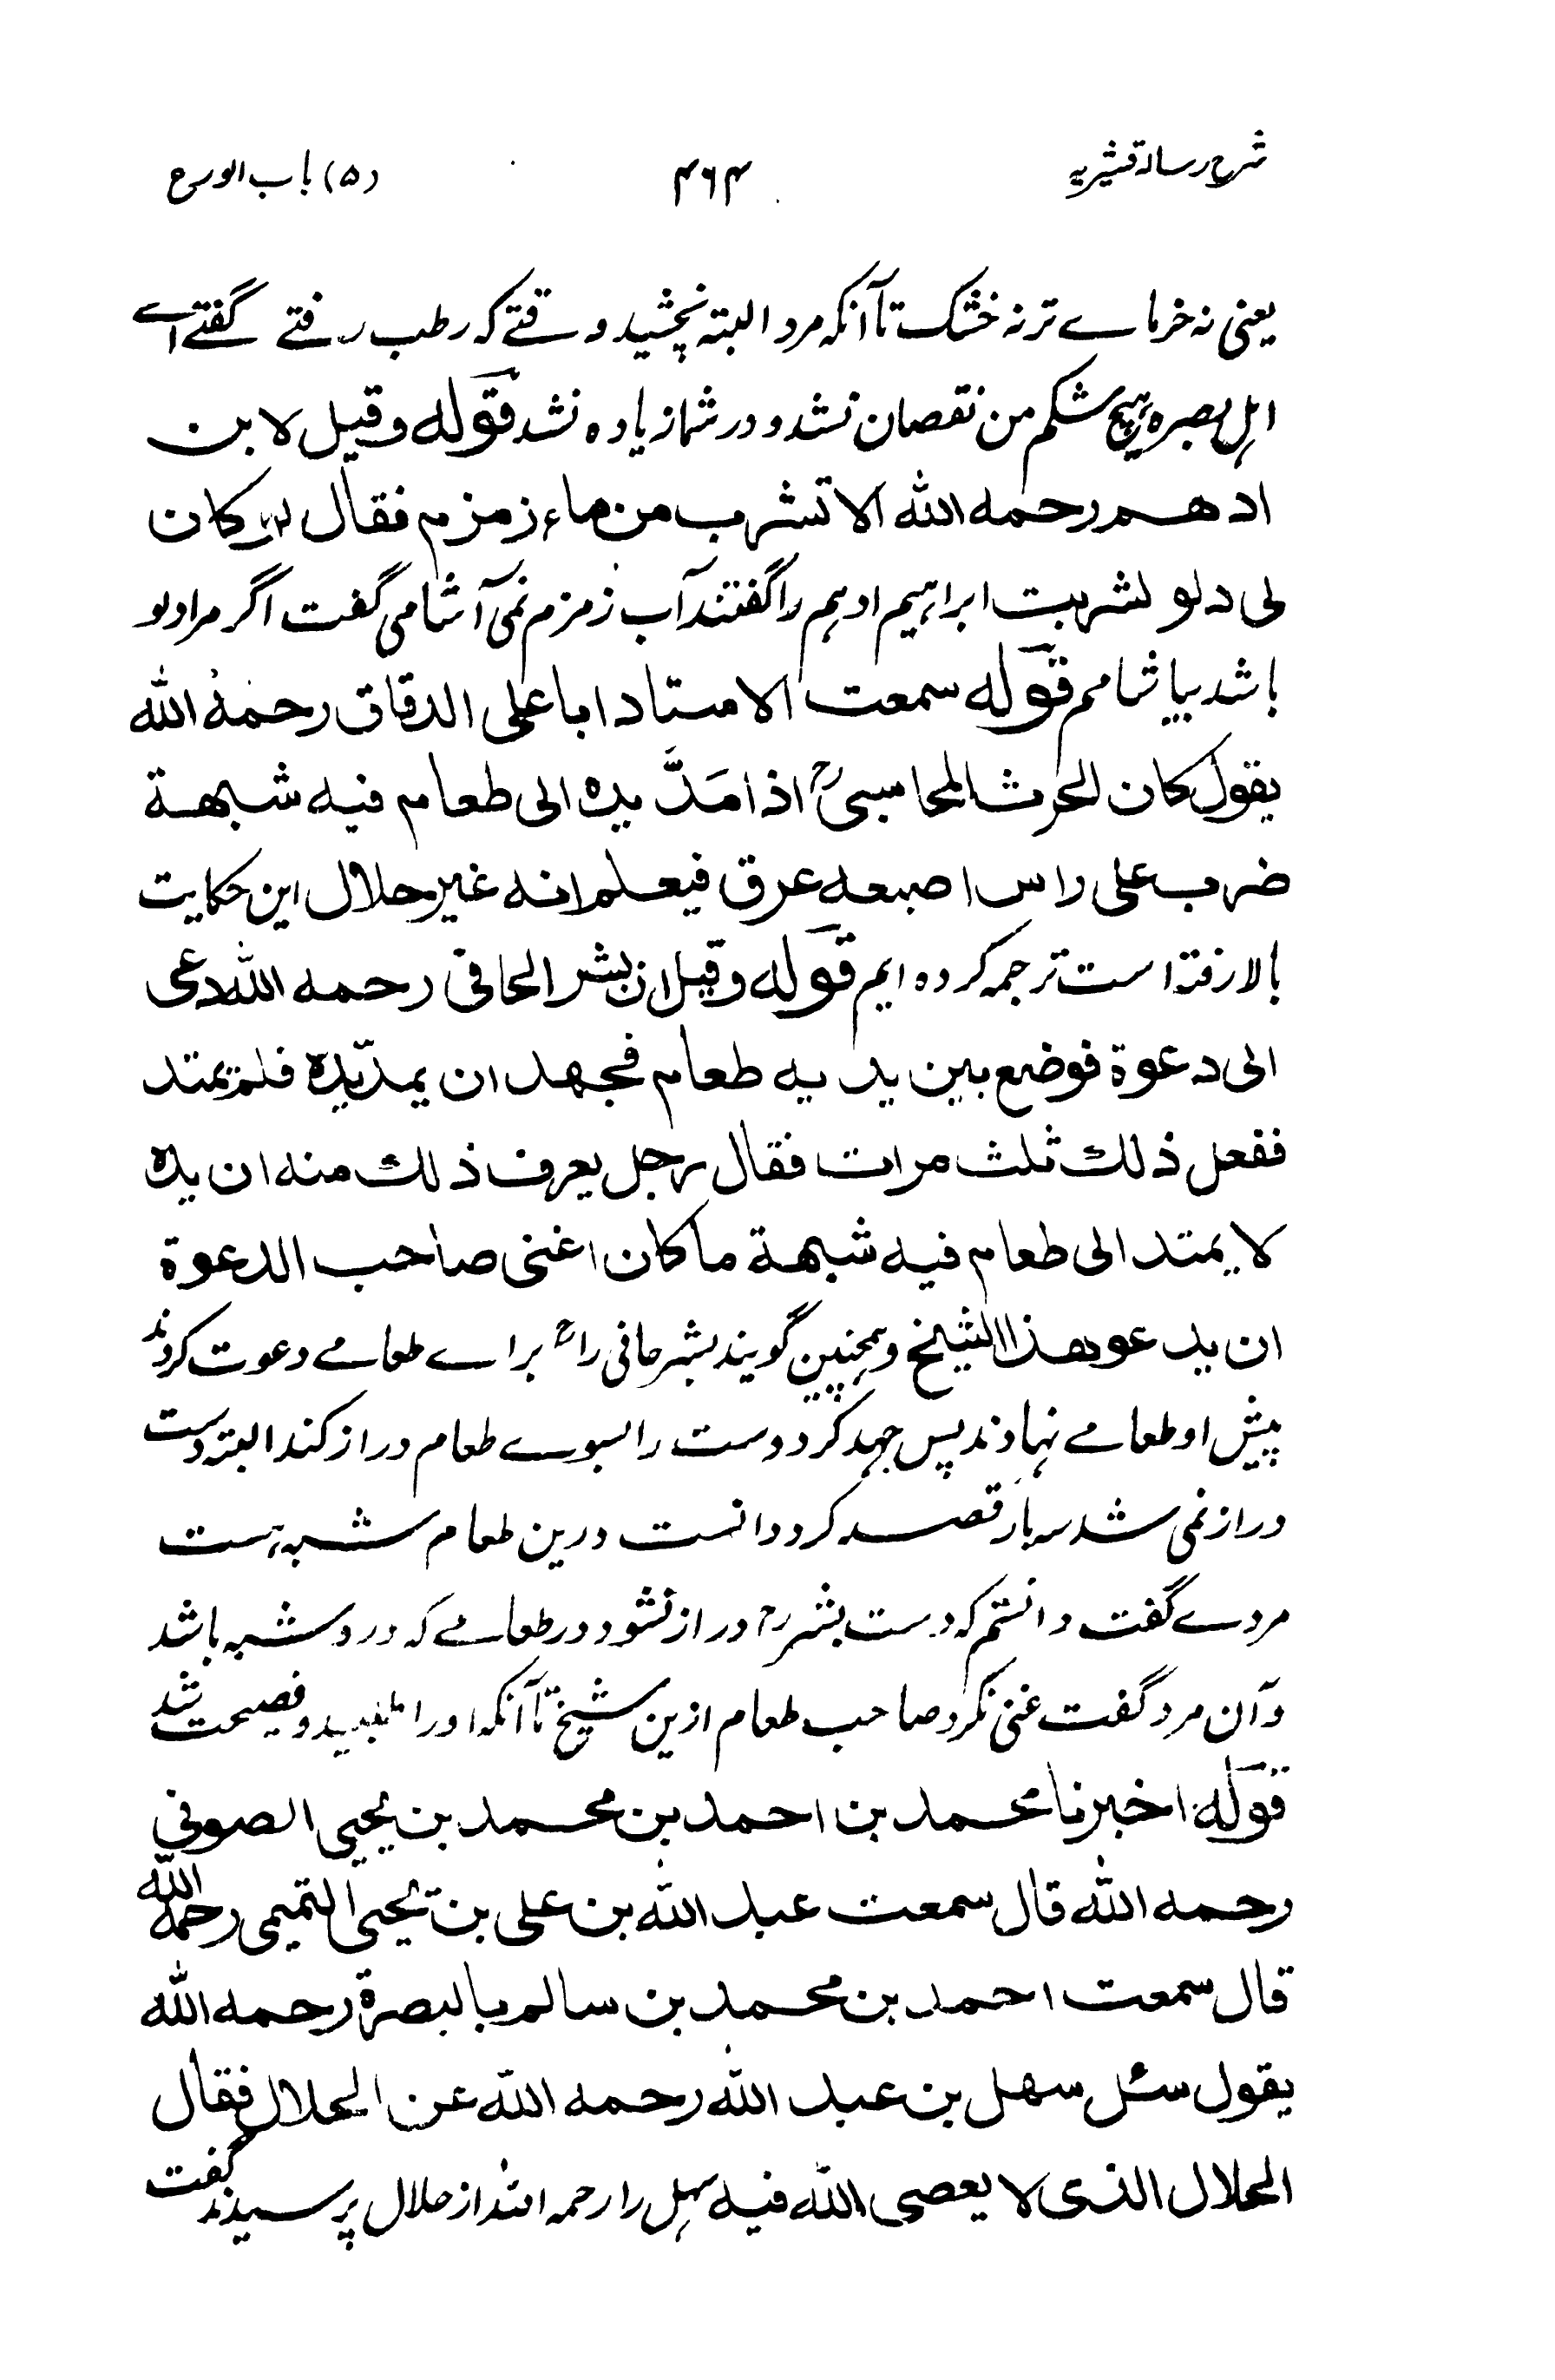 شرح رسالہ قشیریہ ۴۶۴ (۵) باب الورع
یعنی نہ خرمائے تر نہ خشک تا آنکہ مرد البتہ نچشید وقتے کہ رطب رفتے گفتے اے
اہل بصرہ ہیچ شکم من نقصان نشد و در شما زیادہ نشد قوله وقيل لابن
ادهم رحمه الله الا تشرب من ماء زمزم فقال لو كان
لى دلو لشربت ابراہیم ادہم را گفتند آب زمزم نمی آشامی گفت اگر مرا دلو
باشد بیاشامم قوله سمعت الاستاد ابا على الدقاق رحمه الله
يقول كان الحرث المحاسبى رح اذا مَدَّ يده الى طعام فيه شبهة
ضرب على راس اصبعه عرق فيعلم انه غير حلال این حکایت
بالا رفتہ است ترجمہ کردہ ایم قوله وقيل ان بشر الحافى رحمه الله دعى
الى دعوة فوضع بين يديه طعام فجهد ان يمدّ يده فلم تمتد
ففعل ذلك ثلث مرات فقال رجل يعرف ذلك منه ان يده
لا يمتد الى طعام فيه شبهة ما كان اغنى صاحب الدعوة
ان يدعو هذا الشيخ وہمچنین گویند بشر حافی را رح برائے طعامے دعوت کردند
پیش او طعامے نہادند پس جہد کرد دست را بسوے طعام دراز کند البتہ دست
دراز نمی شد سہ بار قصد کرد دانست درین طعام شبہ ہست
مردے گفت دانستم کہ دست بشر رح دراز نشود در طعامے کہ درو شبہ باشد
و آن مرد گفت غنی نکرد صاحب طعام ازین شیخ تا آنکہ او را طلبید و فصیحت شد
قوله اخبرنا محمد بن احمد بن محمد بن يحيى الصوفى
رحمه الله قال سمعت عبد الله بن على بن يحيى التميمى رحمه الله
قال سمعت احمد بن محمد بن سالم بالبصرة رحمه الله
يقول سئل سهل بن عبد الله رحمه الله عن الحلال فقال
الحلال الذى لا يعصى الله فيه سہل را رحمہ اللہ از حلال پرسیدند گفت